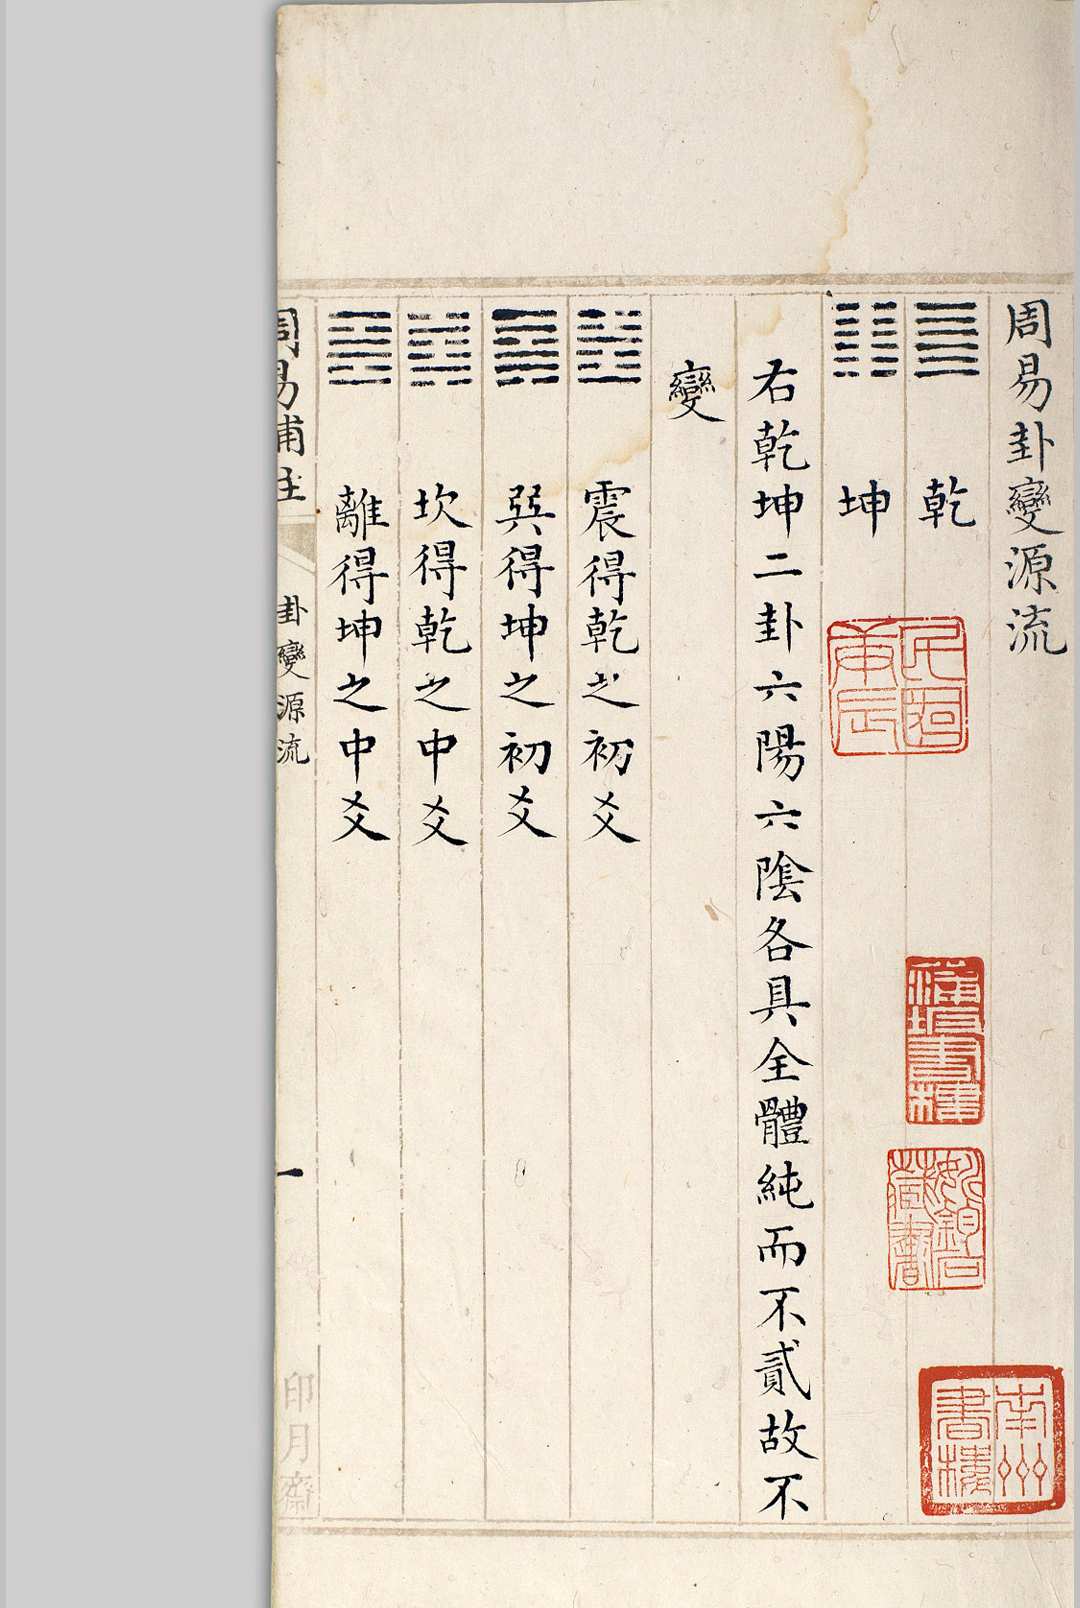 周易卦變源流
䷀ 乾
䷁ 坤
右乾坤二卦六陽六陰各具全體純而不貳故不
變
䷲ 震得乾之初爻
䷸ 巽得坤之初爻
䷜ 坎得乾之中爻
䷝ 離得坤之中爻
周易補註
卦變源流
一
印月齋
南州
書樓
藏書
書樓
庚辰